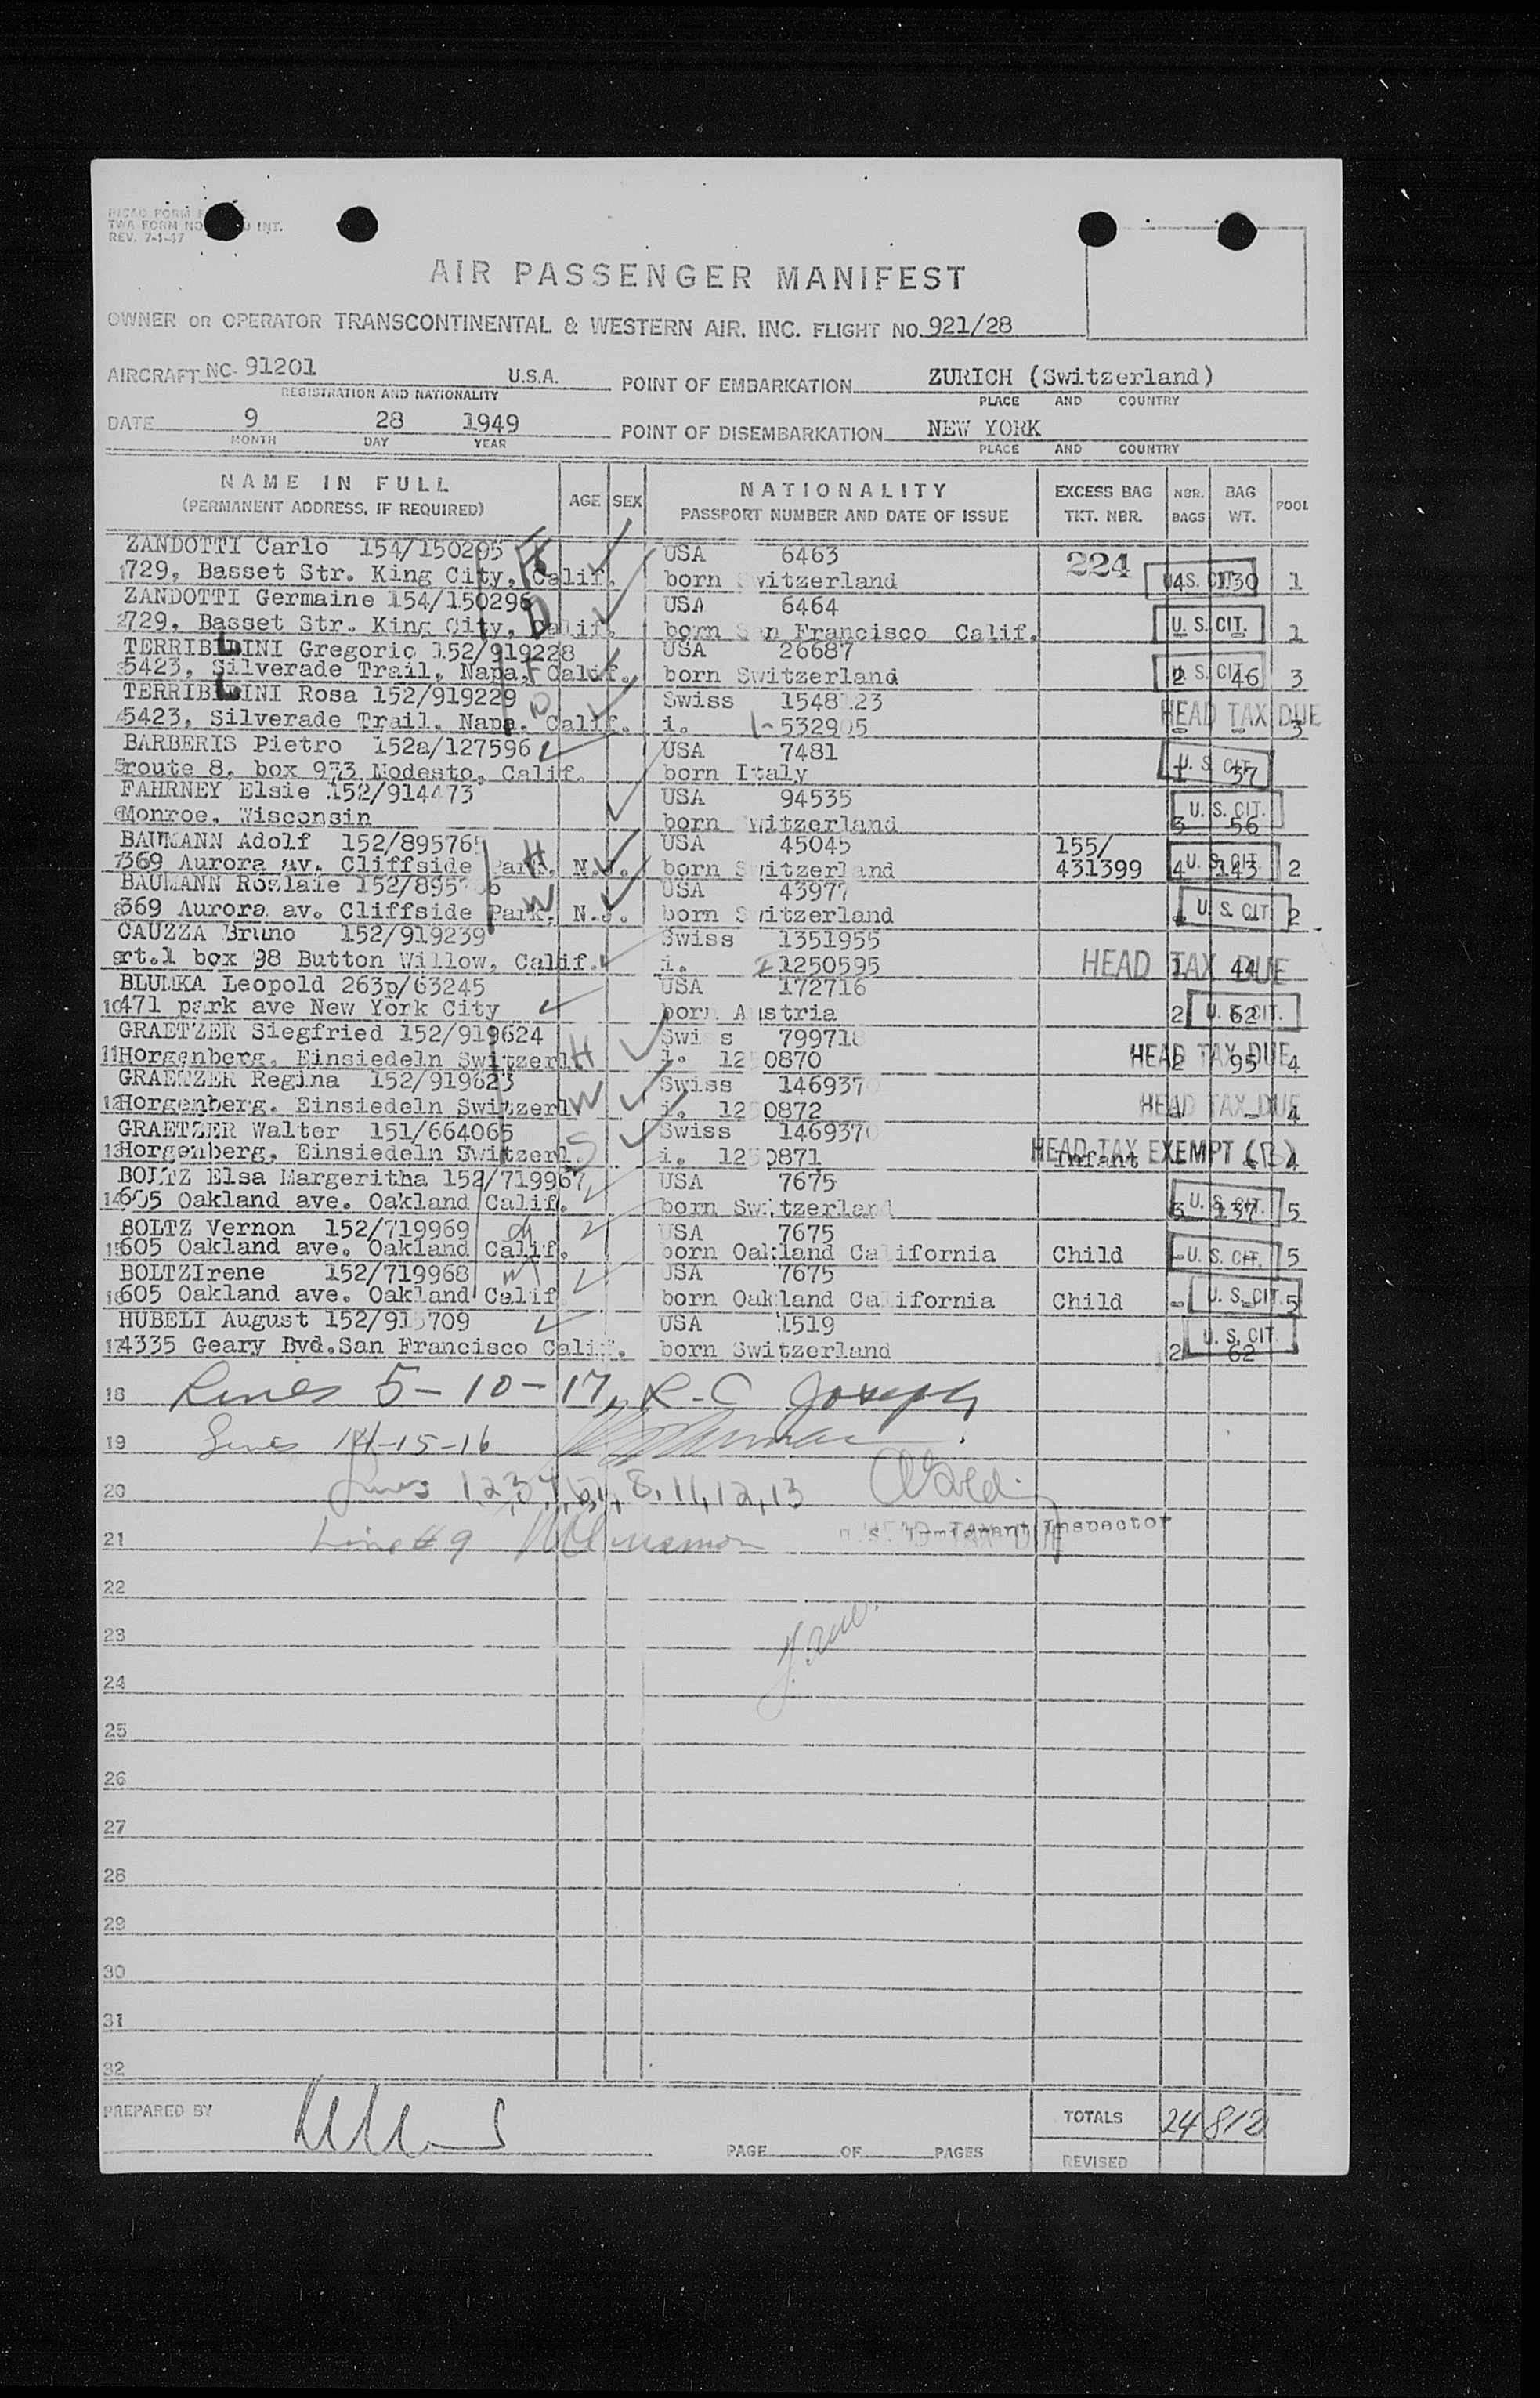 PICAO FORM
TWA FORM NO INT.
REV. 7-1-47
AIR PASSENGER MANIFEST
OWNER OR OPERATOR TRANSCONTINENTAL & WESTERN AIR, INC. FLIGHT NO. 921/28
AIRCRAFT NC- 91201 U.S.A. POINT OF EMBARKATION ZURICH (Switzerland)
REGISTRATION AND NATIONALITY PLACE AND COUNTRY
DATE 9 28 1949 POINT OF DISEMBARKATION NEW YORK
MONTH DAY YEAR PLACE AND COUNTRY
NAME IN FULL AGE SEX NATIONALITY EXCESS BAG NBR. BAG POOL
(PERMANENT ADDRESS, IF REQUIRED) PASSPORT NUMBER AND DATE OF ISSUE TKT. NBR. BAGS WT.
ZANDOTTI Carlo 154/150295 F USA 6463 224
1 729, Basset Str. King City, Calif. born Switzerland 4 U.S. CIT. 130 1
ZANDOTTI Germaine 154/150296 D USA 6464
2 729, Basset Str. King City, Calif. born San Francisco Calif. - U.S. CIT. - 1
TERRIBILINI Gregorio 152/919228 USA 26687
3 5423, Silverade Trail, Napa, Calif. F born Switzerland 2 U.S. CIT. 46 3
TERRIBILINI Rosa 152/919229 D Swiss 1548 23 HEAD TAX DUE
4 5423, Silverade Trail, Napa, Calif. i. 532905 - - 3
BARBERIS Pietro 152a/127596 USA 7481
5 route 8, box 973 Modesto, Calif. born Italy 1 U.S. CIT. 37
FAHRNEY Elsie 152/914473 USA 94535
6 Monroe, Wisconsin born Switzerland 3 U.S. CIT. 56
BAUMANN Adolf 152/895765 H USA 45045 155/
7 369 Aurora av. Cliffside Park, N.J. born Switzerland 431399 4 U.S. CIT. 143 2
BAUMANN Roslaie 152/895766 W USA 43977
8 369 Aurora av. Cliffside Park, N.J. born Switzerland - U.S. CIT. 2
CAUZZA Bruno 152/919239 Swiss 1351955
9 rt.1 box 98 Button Willow, Calif. i. 1250595 HEAD TAX DUE 1 44
BLUMKA Leopold 263p/63245 USA 172716
10 471 park ave New York City born Austria 2 U.S. CIT. 62
GRAETZER Siegfried 152/919624 Swiss 799718
11 Horgenberg, Einsiedeln Switzerl. H i. 1250870 HEAD TAX DUE 2 95 4
GRAETZER Regina 152/919623 Swiss 1469370
12 Horgenberg, Einsiedeln Switzerl. W i. 1250872 HEAD TAX DUE - - 4
GRAETZER Walter 151/664065 Swiss 1469370
13 Horgenberg, Einsiedeln Switzerl. S i. 1250871 HEAD TAX EXEMPT Infant 4
BOLTZ Elsa Margeritha 152/719967 USA 7675
14 605 Oakland ave. Oakland Calif. born Switzerland 3 U.S. CIT. 137 5
BOLTZ Vernon 152/719969 USA 7675
15 605 Oakland ave. Oakland Calif. born Oakland California Child - U.S. CIT. 5
BOLTZIrene 152/719968 USA 7675
16 605 Oakland ave. Oakland Calif born Oakland California Child - U.S. CIT. 5
HUBELI August 152/91 709 USA 1519
17 4335 Geary Bvd.San Francisco Calif. born Switzerland 2 U.S. CIT. 62
18 Lines 5-10-17, R-C Joseph
19 Lines 14-15-16
20 Lines 1,2,3,4,6,7,8,11,12,13
21 Line #9 HEAD TAX DUE Immigrant Inspector
22
23
24
25
26
27
28
29
30
31
32
PREPARED BY TOTALS 24 812
PAGE OF PAGES REVISED